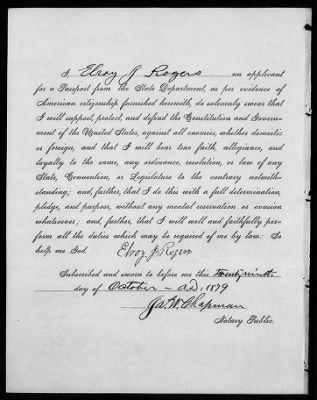 I, Elroy J Rogers an applicant
for a Passport from the State Department, as per evidence of
American citizenship furnished herewith, do solemnly swear that
I will support, protect, and defend the Constitution and Govern-
ment of the United States, against all enemies, whether domestic
or foreign, and that I will bear true faith, allegiance, and
loyalty to the same, any ordinance, resolution, or law of any
State, Convention, or Legislature to the contrary notwith-
standing; and, further, that I do this with a full determination,
pledge, and purpose, without any mental reservation or evasion
whatsoever; and, further, that I will well and faithfully per-
form all the duties which may be required of me by law: So
help me God.
Elroy J Rogers
Subscribed and sworn to before me this Twenty ninth
day of October - A.D. 1879
Ja. W. Chapman
Notary Public